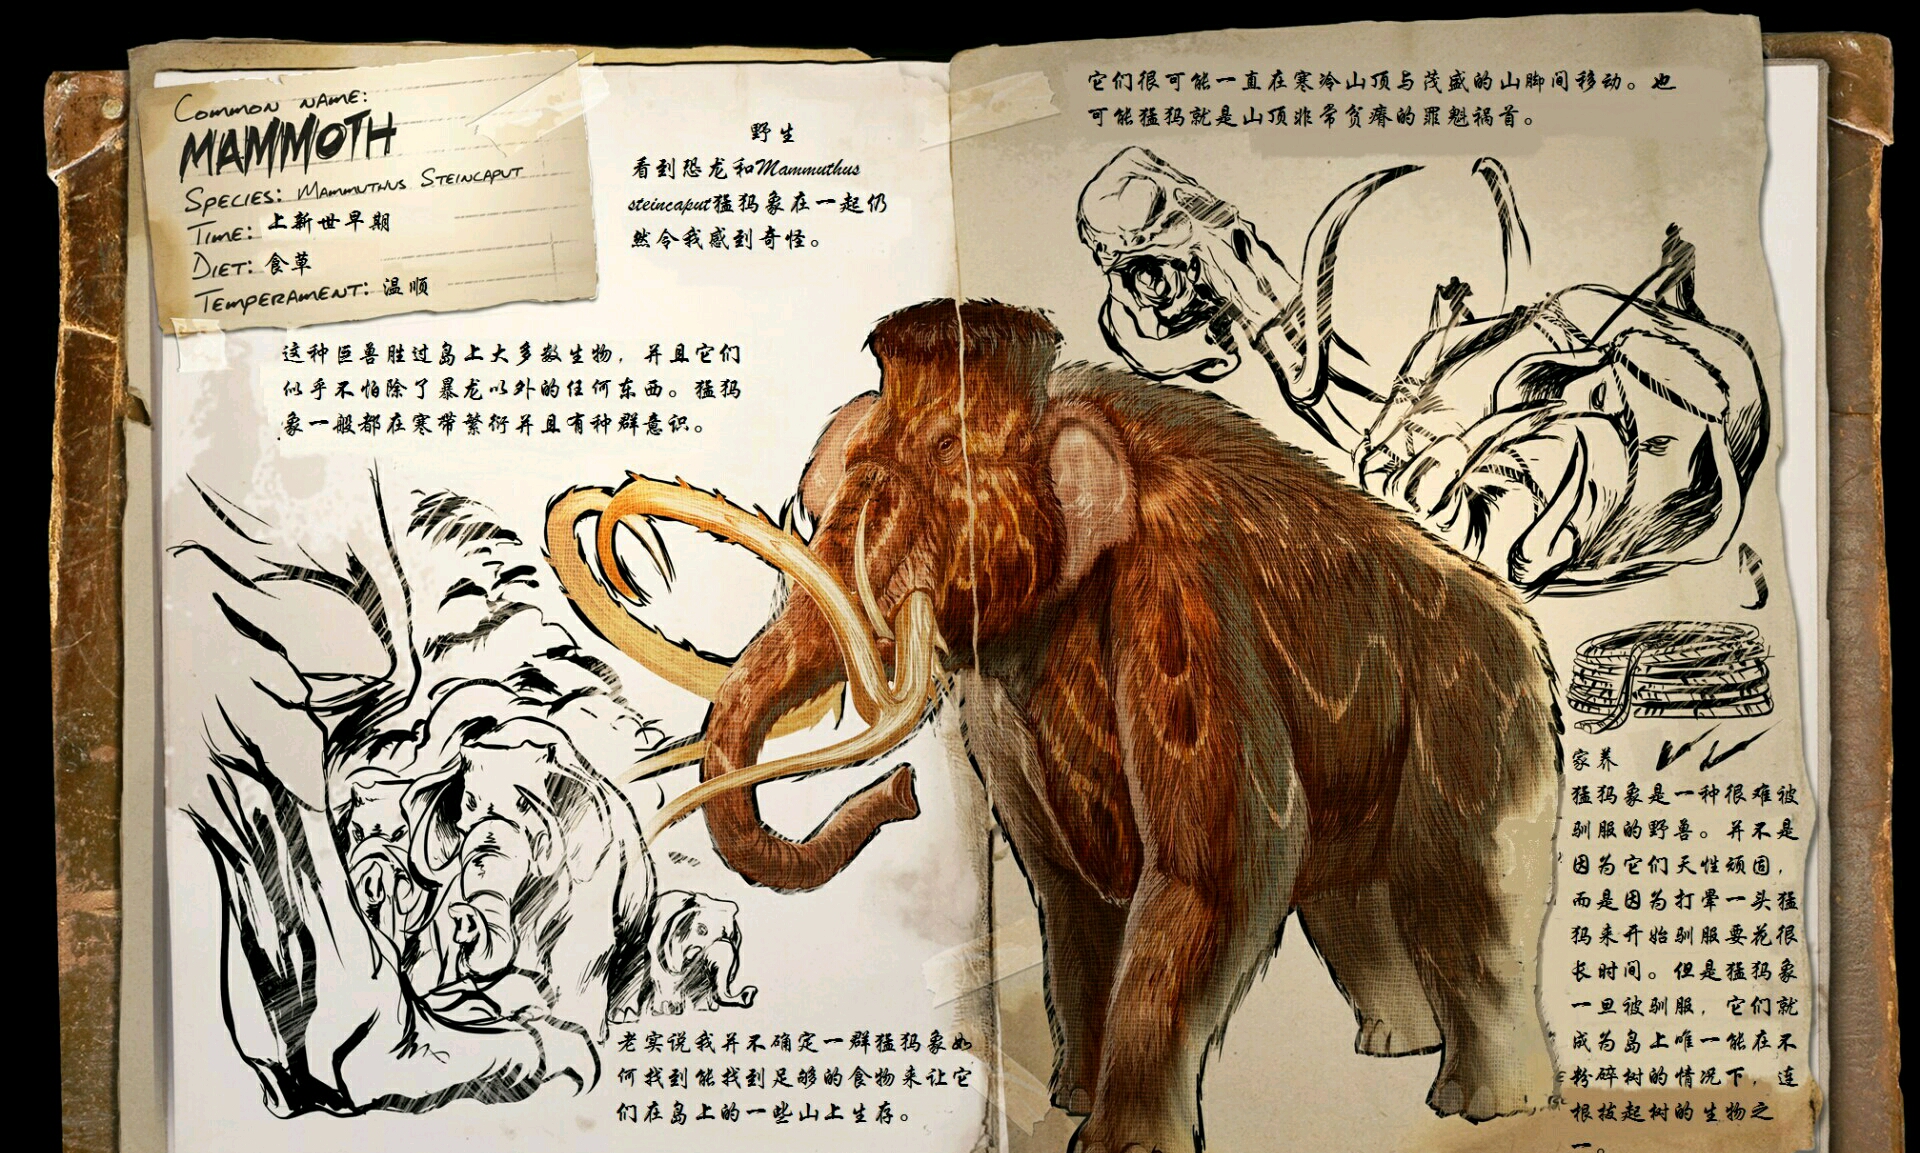 COMMON NAME:
MAMMOTH
SPECIES: MAMMUTHUS STEINCAPUT
TIME: 上新世早期
DIET: 食草
TEMPERAMENT: 温顺
野生
看到恐龙和Mammuthus
steincaput猛犸象在一起仍
然令我感到奇怪。
这种巨兽胜过岛上大多数生物，并且它们
似乎不怕除了暴龙以外的任何东西。猛犸
象一般都在寒带繁衍并且有种群意识。
老实说我并不确定一群猛犸象如
何找到能找到足够的食物来让它
们在岛上的一些山上生存。
它们很可能一直在寒冷山顶与茂盛的山脚间移动。也
可能猛犸就是山顶非常贫瘠的罪魁祸首。
家养
猛犸象是一种很难被
驯服的野兽。并不是
因为它们天性顽固，
而是因为打晕一头猛
犸来开始驯服要花很
长时间。但是猛犸象
一旦被驯服，它们就
成为岛上唯一能在不
粉碎树的情况下，连
根拔起树的生物之
一。